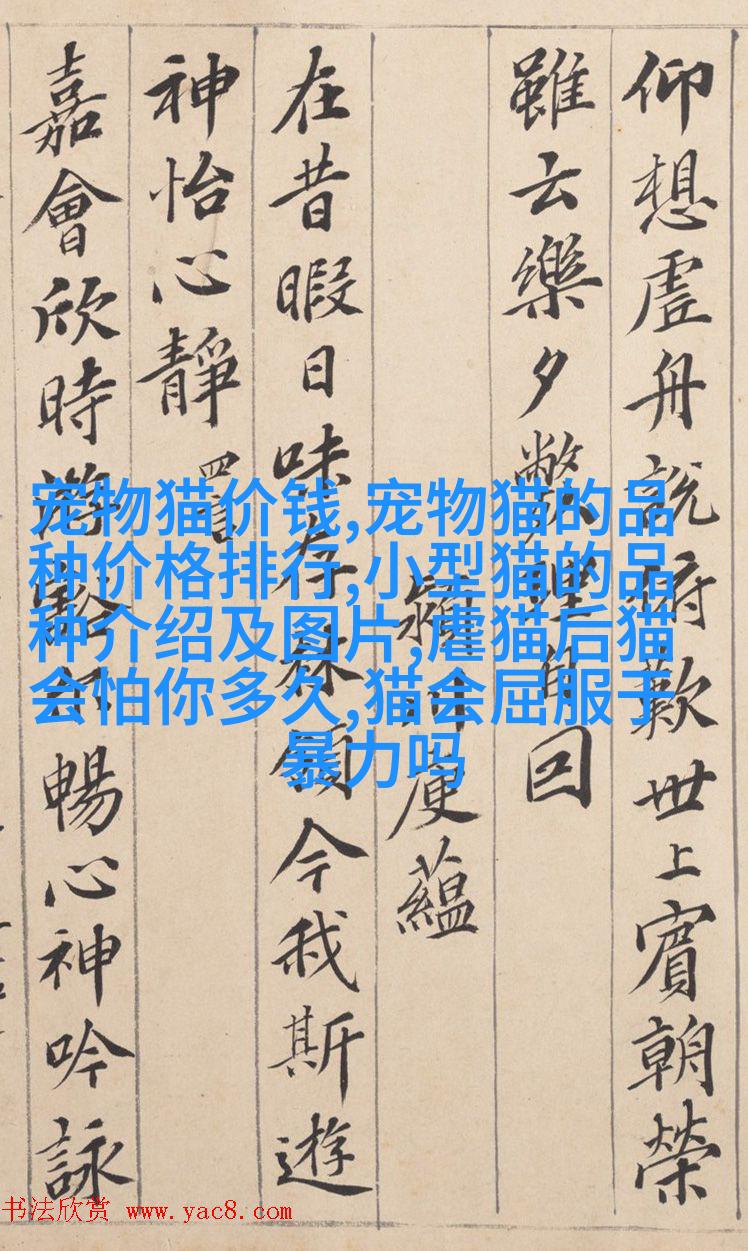 仰想虗舟說俯歎世上賓朝榮
雖云樂夕弊理自回
潁川庾蘊
在昔暇日味存林嶺今我斯遊
神怡心靜
嘉會欣時遊豁爾暢心神吟詠
宠物猫价钱,宠物猫的品
种价格排行,小型猫的品
种介绍及图片,虐猫后猫
会怕你多久,猫会屈服于
暴力吗
书法欣赏 www.yac8.com